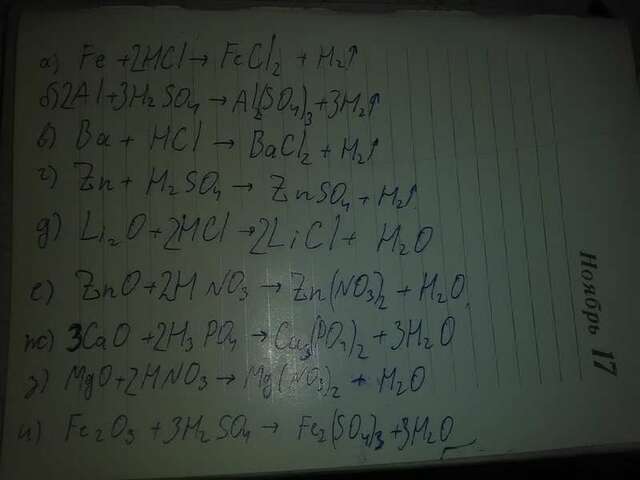 а) Fe + 2HCl → FeCl₂ + H₂↑
б) 2Al + 3H₂SO₄ → Al₂(SO₄)₃ + 3H₂↑
в) Ba + HCl → BaCl₂ + H₂↑
г) Zn + H₂SO₄ → ZnSO₄ + H₂↑
д) Li₂O + 2HCl → 2LiCl + H₂O
е) ZnO + 2HNO₃ → Zn(NO₃)₂ + H₂O
ж) 3CaO + 2H₃PO₄ → Ca₃(PO₄)₂ + 3H₂O
з) MgO + 2HNO₃ → Mg(NO₃)₂ + H₂O
и) Fe₂O₃ + 3H₂SO₄ → Fe₂(SO₄)₃ + 3H₂O
Ноябрь 17